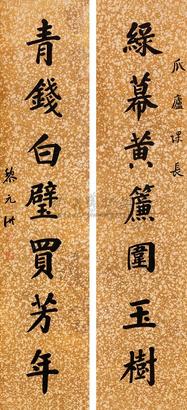 綠幕黄簾圍玉樹
瓜廬課長
青錢白璧買芳年
黎元洪